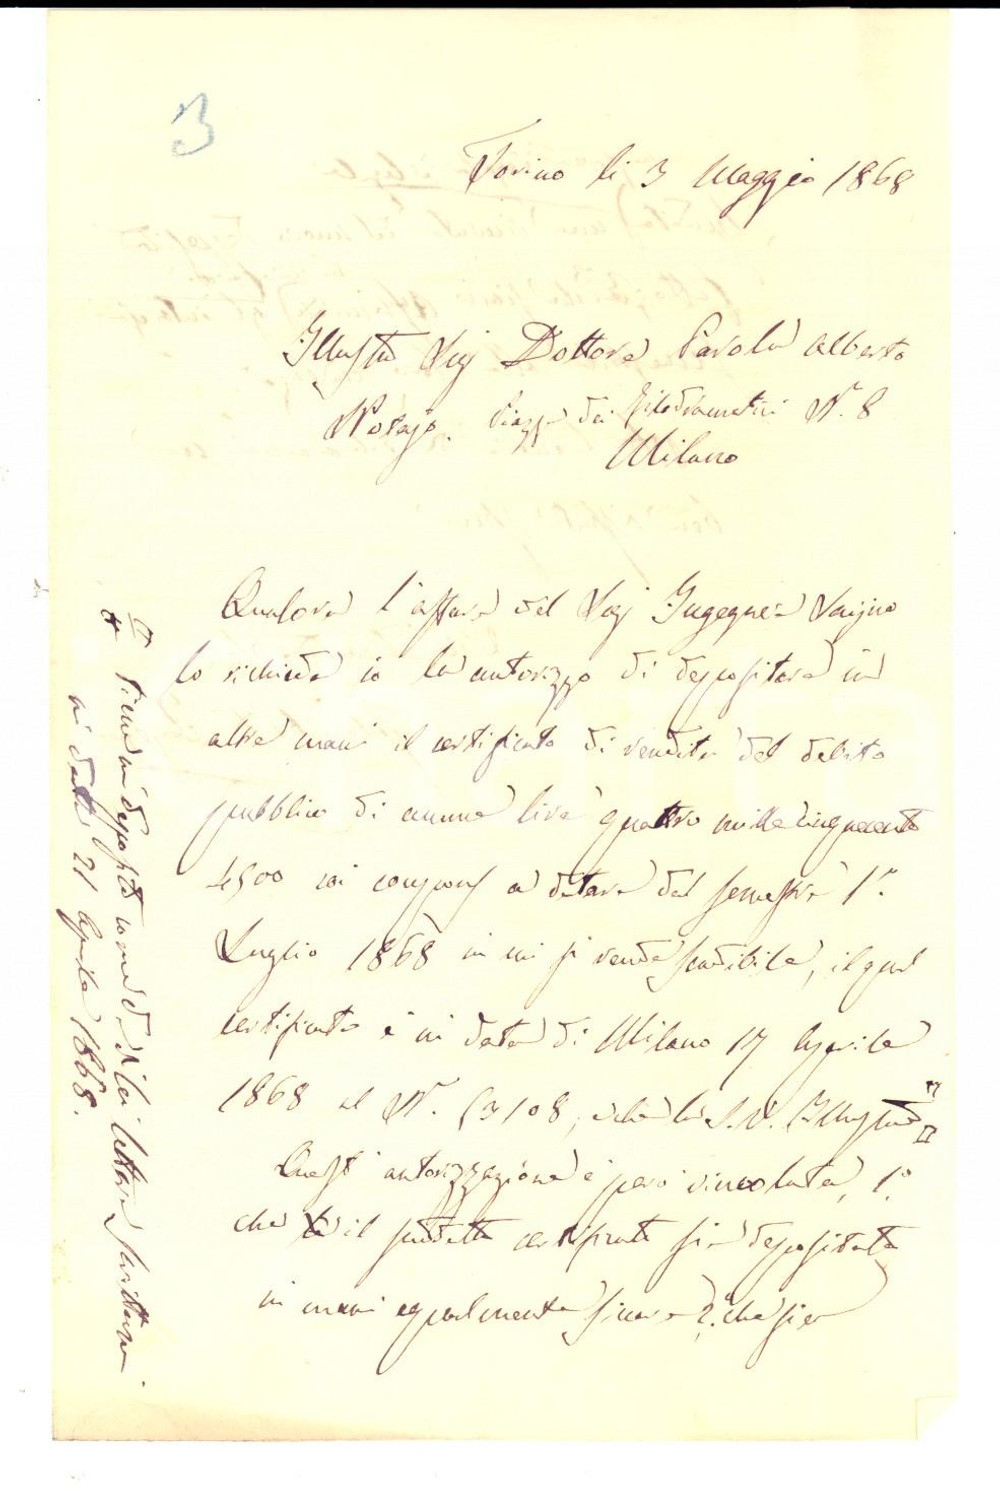 3
Torino li 3 Maggio 1868
Illustre Sig Dottore Parola Alberto
Notajo. Piazza dei Filodrammatici N. 8
Milano
Qualora l'affare del Sig Ingegnere
lo richieda io la autorizzo di depositare in
altre mani il certificato di rendita del debito
pubblico di annue lire quattro mille cinquecento
4500 coi coupons a datare dal semestre 1°
Luglio 1868 in cui si rende esigibile, il qual
certificato è in data di Milano 17 Aprile
1868 al N. 53108, che la S.V. Illustre
Quest'autorizzazione è però vincolata, 1°
che il suddetto certificato sia depositato
in mani egualmente sicure 2° che sia
tiene in deposito come da di lei lettera scrittami
in data 21 Aprile 1868.